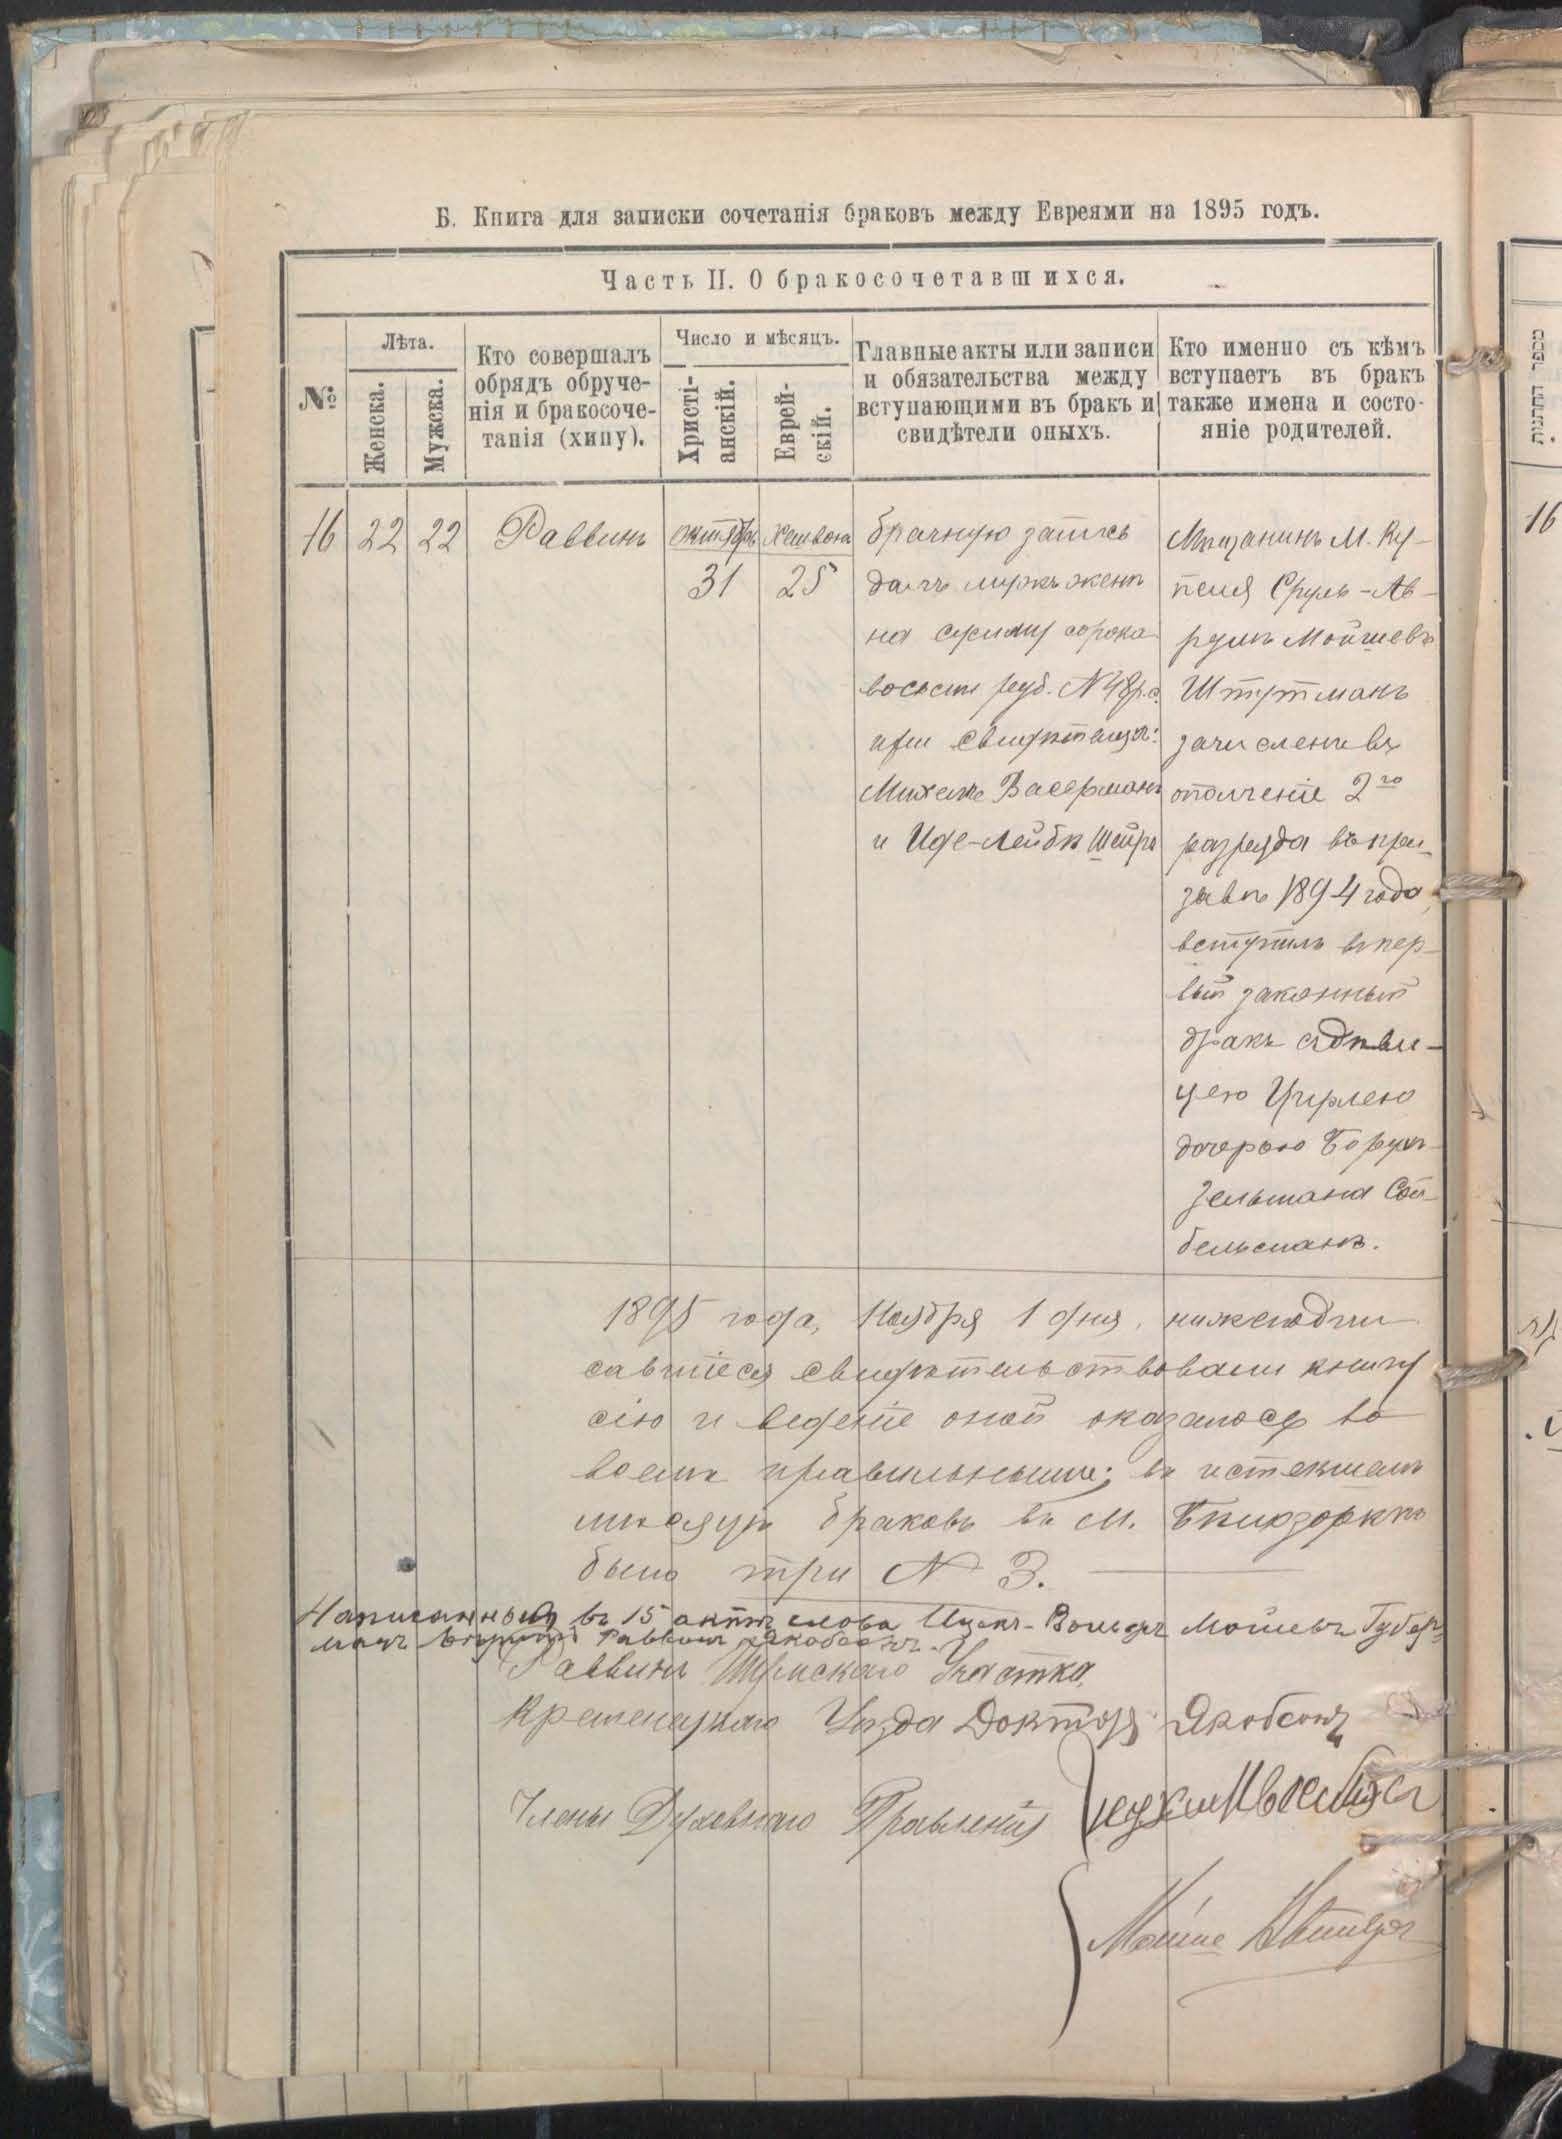 Б. Книга для записки сочетанія браковъ между Евреями на 1895 годъ.
Часть II. О бракосочетавшихся.
№
Лѣта.
Женска.
Мужска.
Кто совершалъ
обрядъ обруче-
нія и бракосоче-
танія (хипу).
Число и мѣсяцъ.
Христі-
анскій.
Еврей-
скій.
Главные акты или записи
и обязательства между
вступающими въ бракъ и
свидѣтели оныхъ.
Кто именно съ кѣмъ
вступаетъ въ бракъ
также имена и состо-
яніе родителей.
16
22
22
Раввинъ
октябрь
31
Хешвона
25
брачную запись
далъ мужъ женѣ
на сумму сорокъ
восемь руб. N 48 р. с.
при свидѣтеляхъ:
Михелѣ Васерманъ
и Иде-Лейбѣ Шейръ
Мѣщанинъ М. Ку-
пеля Сруль-Ав-
румъ Мойшевъ
Штутманъ
зачисленъ въ
ополченіе 2го
разряда въ при-
зывъ 1894 года,
вступилъ въ пер-
вый законный
бракъ съ дѣви-
цею Цирлею
дочерью Борухъ
Зельмана Сой-
бельманъ.
1895 года, Ноября 1 дня, нижеподпи
савшіеся свидѣтельствовали книгу
сію и веденіе оной оказалось во
всемъ правильнымъ; въ истекшемъ
мѣсяцѣ браковъ въ М. Бѣлозоркѣ
было три N 3.
Написанный въ 15 актѣ слова Ицекъ-Вольфъ Мойшевъ Губер-
манъ Раввинъ Якобсонъ.
Раввинъ Шумскаго Участка,
Кременецкаго Уѣзда Докторъ Якобсонъ
Члены Духовнаго Правленія
Мойше
ספר החתונות
16